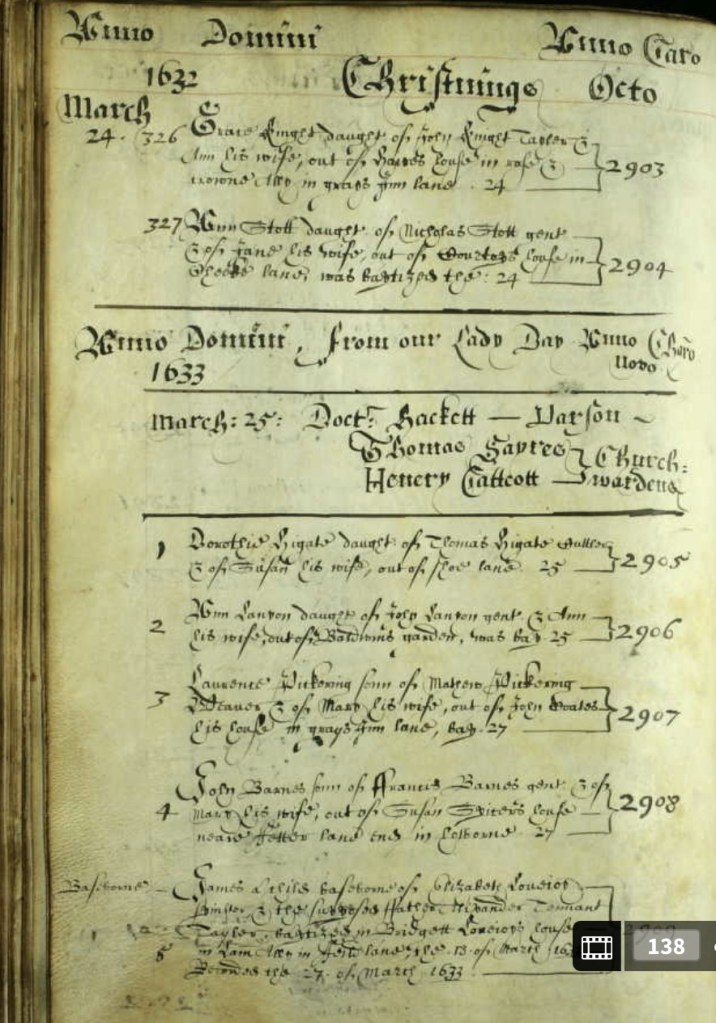 Anno Domini Anno Caro
1632 Christnings Octo
March
24. 326 Grace Knight daught of John Knight Taylor &
Ann his wife, out of house in rose &
crowne Ally in grays Inn lane . 24 2903
327 Ann Stott daught of Nicholas Stott gent
& of Jane his wife, out of house in
lane, was baptized the: 24 2904
Anno Domini, From our Lady Day Anno Caro
1633 Nono
March: 25: Doctr. Hackett — Parson
Thomas Sayres Church:
Henery Cattcott — wardens
1 Dorothie Higate daught of Thomas Higate Cuttler
& of Susan his wife, out of shoe lane 25 2905
2 Ann Lanyon daught of John Lanyon gent & Ann
his wife, out of Baldwins garden, was bap 25 2906
3 Laurence Pickering sonn of Mathew Pickering
Weaver & of Mary his wife, out of John
his house in grays Inn lane, bap. 27 2907
John Barnes sonn of Francis Barnes gent & of
4 Mary his wife, out of Susan house 2908
neare Fetter lane end in Holborne 27
Baseborne — James a child baseborne of Elizabeth Loveioy
& the supposed Father Alexander Tennant
Tayler, baptized in Bridgett Loveioys house
5 in Ally in lane the 13 of March 163
the 27 of March 1633
138